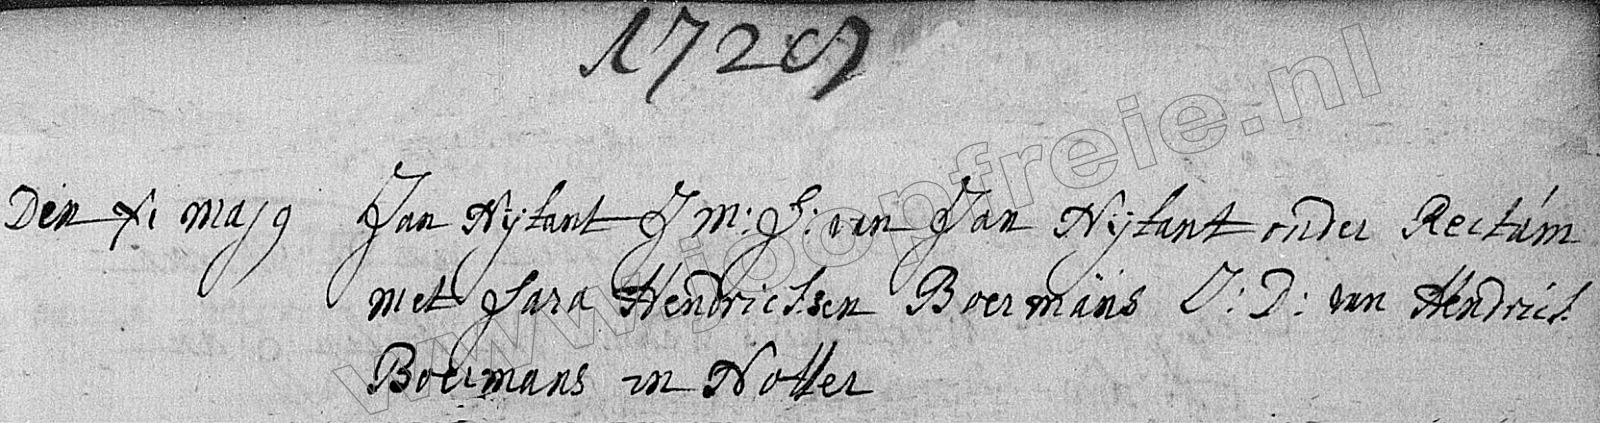 1729
Den xi majg Jan Nÿlant J m: S: van Jan Nÿlant onder Rectum
met Sara Hendricksen Boermans J: D: van Hendrick
Boermans in Notter
www.joopfreie.nl